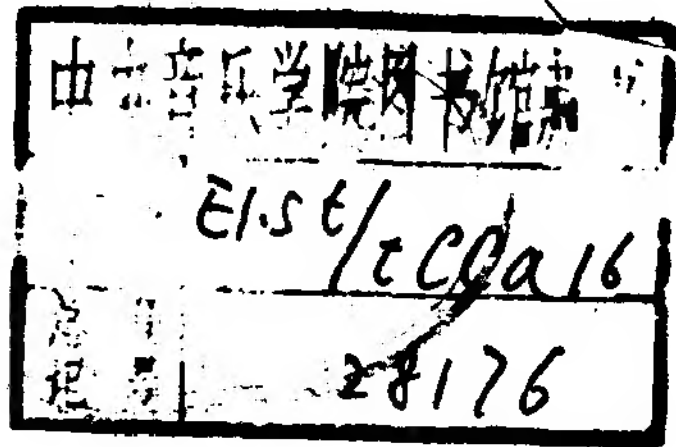 中央音乐学院图书馆藏书
E1.5t/tCCa16
总登记号 28176